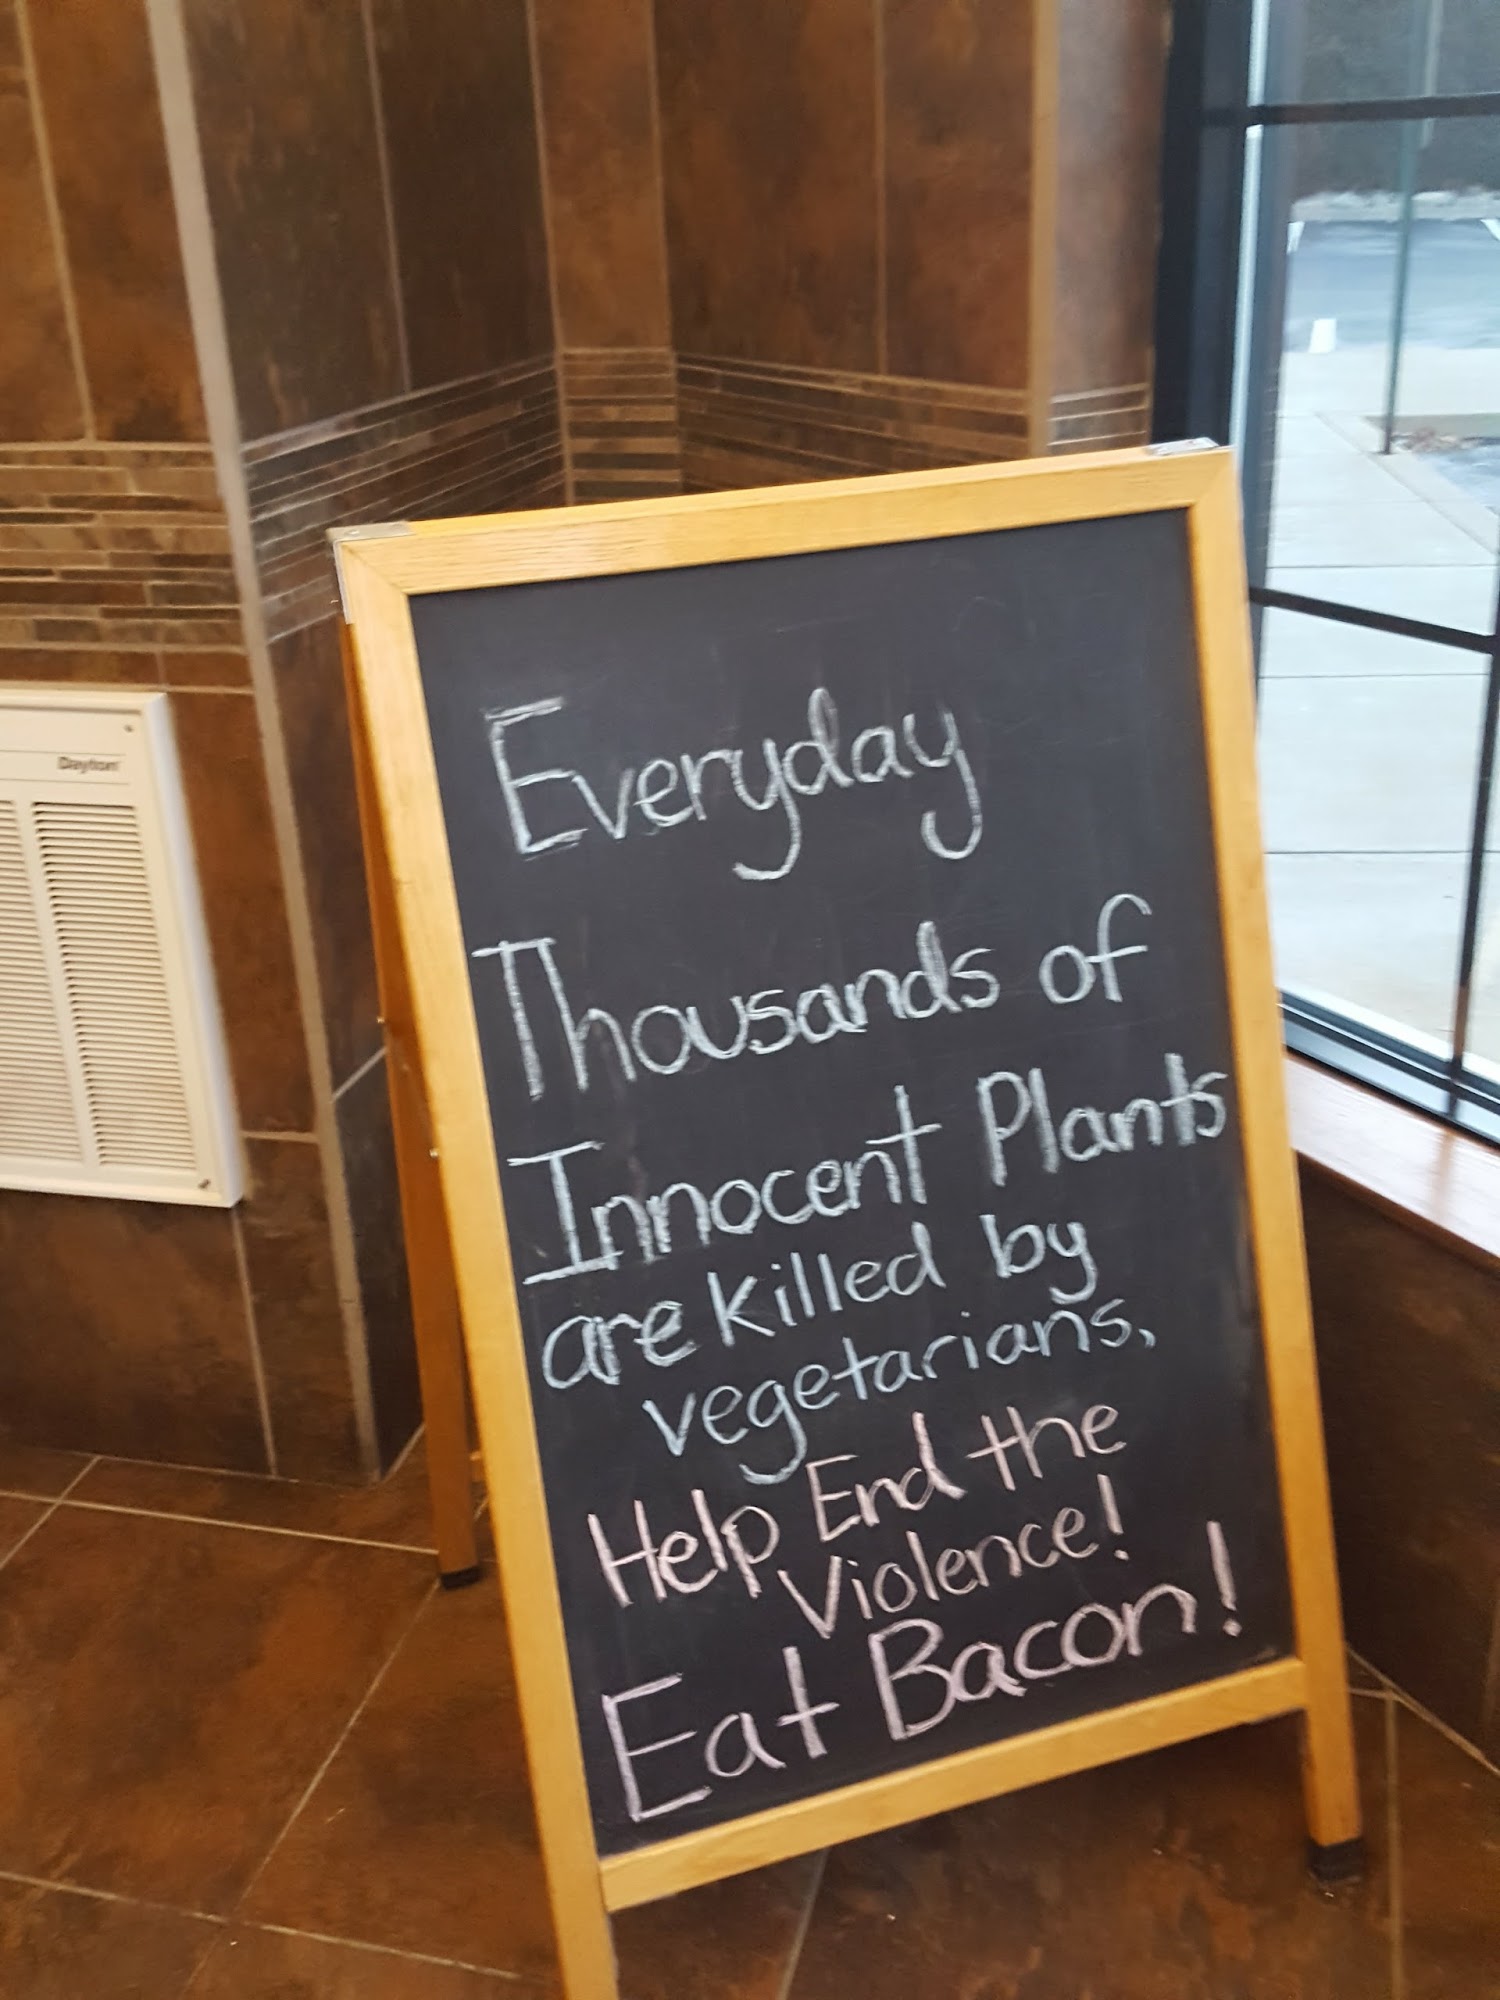 Dayton
Everyday
Thousands of
Innocent Plants
are killed by
vegetarians.
Help End the
Violence!
Eat Bacon!